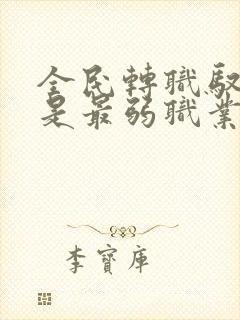 全民轉職馭
是最弱職業
李寶庫